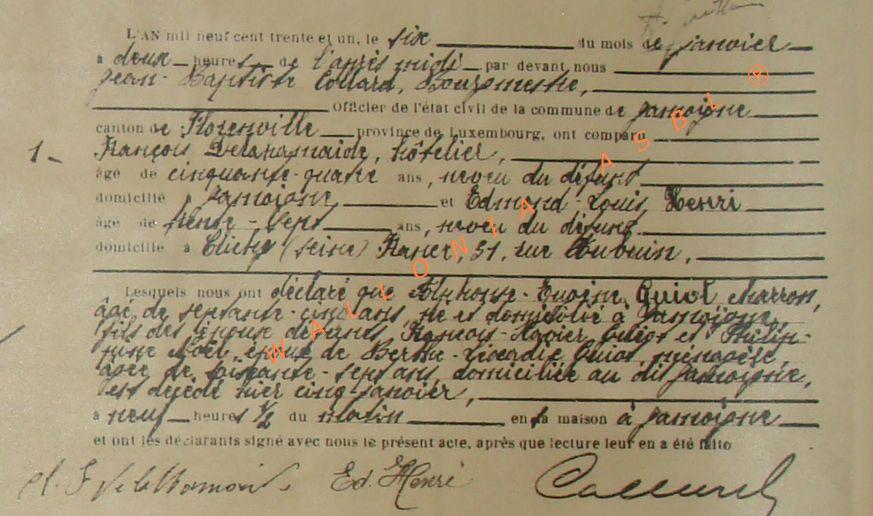 L'AN mil neuf cent trente et un, le six du mois de janvier
à deux heures de l'après midi par devant nous
Jean-Baptiste Collard, Bourgmestre,
Officier de l'état civil de la commune de Jamoigne
canton de Florenville province de Luxembourg, ont comparu
1.- François Delahamaide, hôtelier,
âge de cinquante-quatre ans, neveu du défunt
domicilié Jamoigne et Edmond-Louis Henri
âge de trente-sept ans, neveu du défunt
domicilié à Clichy (Seine) France, 51, rue
Lesquels nous ont déclaré que Alphonse-Eugène Guiot
âgé de septante-cinq ans, né et domicilié à Jamoigne,
fils des époux défunts François-Xavier Guiot et Philip-
pine Noël, époux de Berthe-Léocadie Guiot, ménagère,
âgée de soixante-sept ans domiciliée au dit Jamoigne,
est décédé hier cinq janvier,
à neuf heures 1/2 du matin en sa maison à Jamoigne
et ont les déclarants signé avec nous le présent acte, après que lecture leur en a été faite
Ed. Henri
WALLONIA ASBL ®